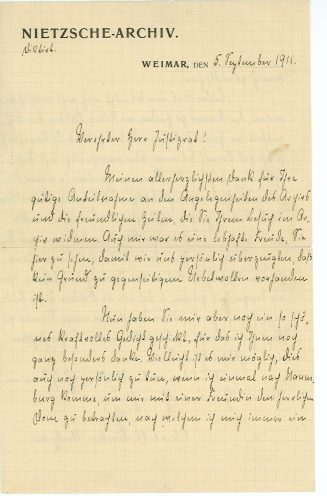 NIETZSCHE-ARCHIV.
Diktirt.
WEIMAR, DEN 5. September 1911.
Verehrter Herr Justizrat!
Meinen allerherzlichsten Dank für Ihre
gütige Anteilnahme an den Angelegenheiten des Archivs
und die freundlichen Zeilen, die Sie Ihrem Besuch im Ar-
chiv widmen. Auch mir war es eine lebhafte Freude, Sie
hier zu sehen, damit wir uns persönlich überzeugten, daß
kein Grund zu gegenseitigem Uebelwollen vorhanden
ist.
Nun haben Sie mir aber noch ein so schö-
nes kraftvolles Gedicht geschickt, für das ich Ihnen noch
ganz besonders danke. Vielleicht ist es mir möglich, dies
auch noch persönlich zu tun, wenn ich einmal nach Naum-
burg komme um mir mit einer Freundin den herrlichen
Dom zu betrachten, nach welchem ich mich immer ein